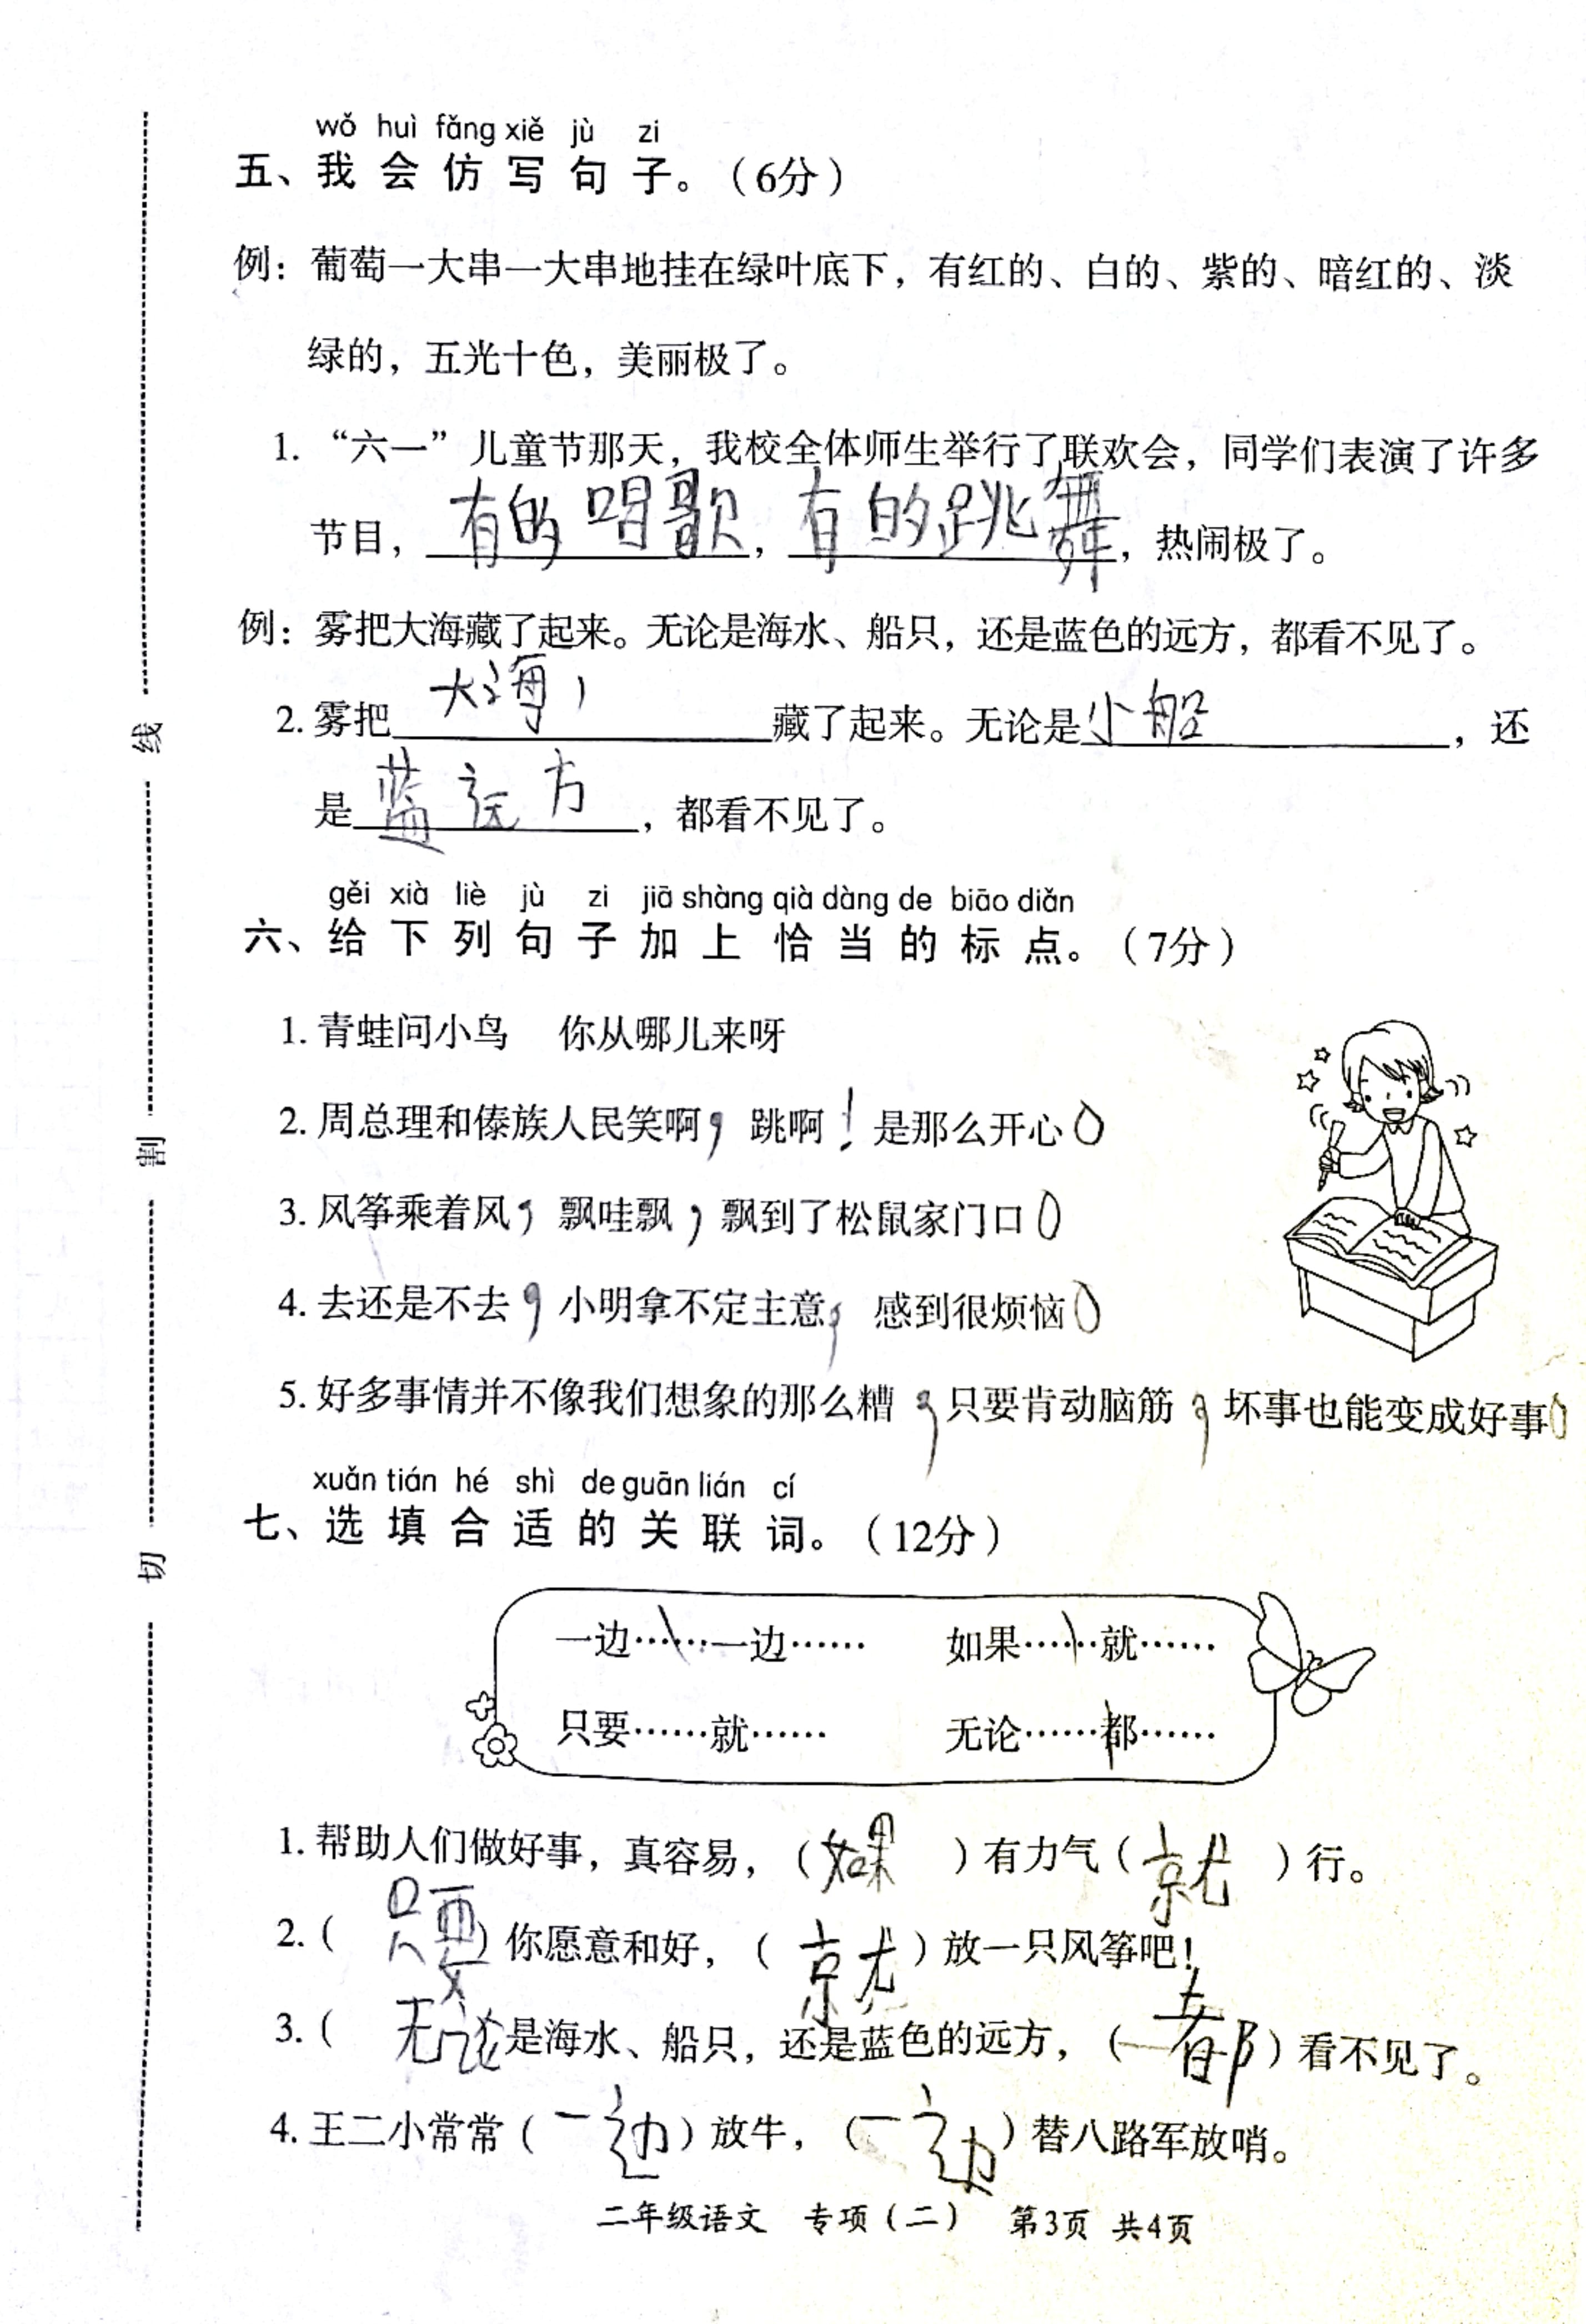 wǒ huì fǎng xiě jù zi
五、我会仿写句子。（6分）
例：葡萄一大串一大串地挂在绿叶底下，有红的、白的、紫的、暗红的、淡
绿的，五光十色，美丽极了。
1. “六一”儿童节那天，我校全体师生举行了联欢会，同学们表演了许多
节目，有的唱歌，有的跳舞，热闹极了。
例：雾把大海藏了起来。无论是海水、船只，还是蓝色的远方，都看不见了。
2. 雾把大海藏了起来。无论是小船，还
是蓝远方，都看不见了。
gěi xià liè jù zi jiā shàng qià dàng de biāo diǎn
六、给下列句子加上恰当的标点。（7分）
1. 青蛙问小鸟 你从哪儿来呀
2. 周总理和傣族人民笑啊，跳啊！是那么开心。
3. 风筝乘着风，飘哇飘，飘到了松鼠家门口。
4. 去还是不去，小明拿不定主意，感到很烦恼。
5. 好多事情并不像我们想象的那么糟，只要肯动脑筋，坏事也能变成好事。
xuǎn tián hé shì de guān lián cí
七、选填合适的关联词。（12分）
一边……一边…… 如果……就……
只要……就…… 无论……都……
1. 帮助人们做好事，真容易，（如果）有力气（就）行。
2.（只要）你愿意和好，（就）放一只风筝吧！
3.（无论是海水、船只，还是蓝色的远方，（都）看不见了。
4. 王二小常常（一边）放牛，（一边）替八路军放哨。
二年级语文 专项（二） 第3页 共4页
线
割
切